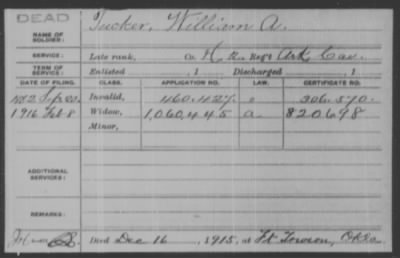 DEAD
NAME OF SOLDIER: Tucker, William A.
SERVICE: Late rank, Co. H, 2 Reg't Ark Cav.
TERM OF SERVICE: Enlisted , 1 Discharged , 1
DATE OF FILING. CLASS. APPLICATION NO. LAW. CERTIFICATE NO.
1882 Sep Invalid, 460.427. 306.570.
1916 Feb 8 Widow, 1,060,445 a. 820698
Minor,
ADDITIONAL SERVICES:
REMARKS:
Died Dec 16, 1915, at Ft Towson, Okla.